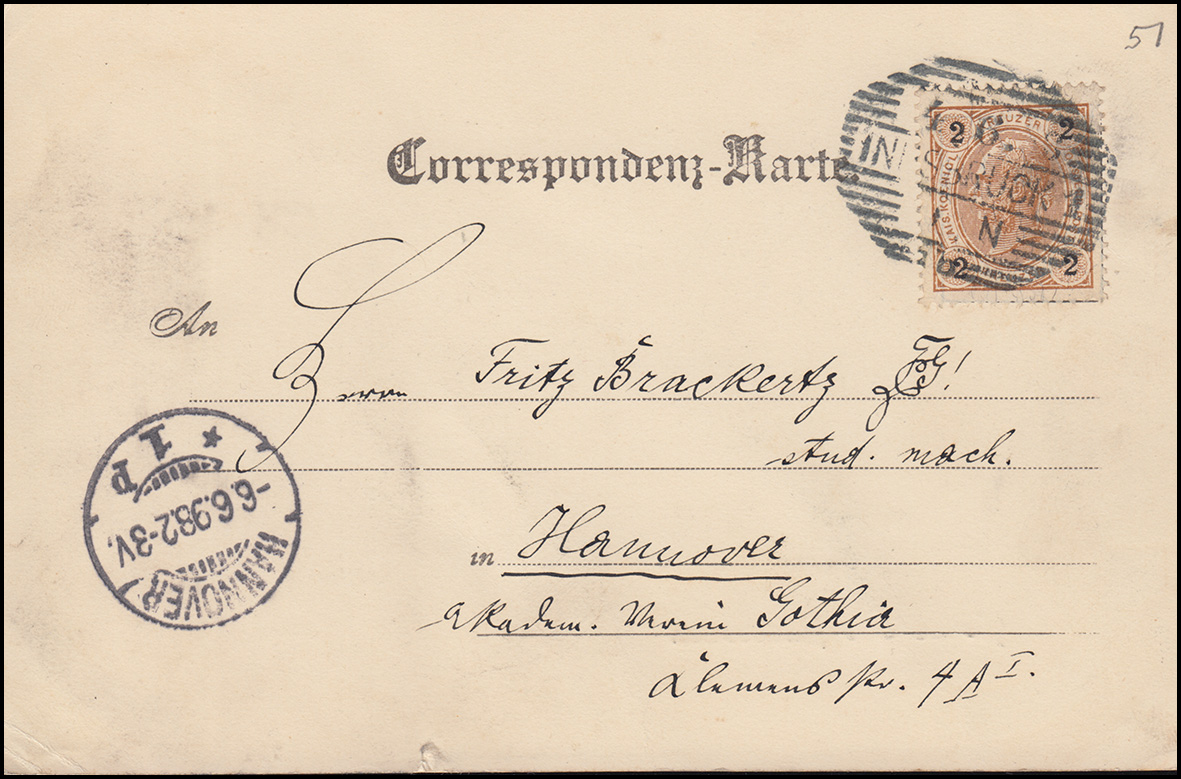 51
Correspondenz-Karte
2 KREUZER 2
KAIS. KOENIGL.
2 2
6.
INNSBRUCK
N
An
Herrn Fritz Brackertz
stud. mach.
in Hannover
akadem. Verein Gothia
Clemensstr. 4 A I.
HANNOVER
-6.6.98.2-3V.
* 1 p